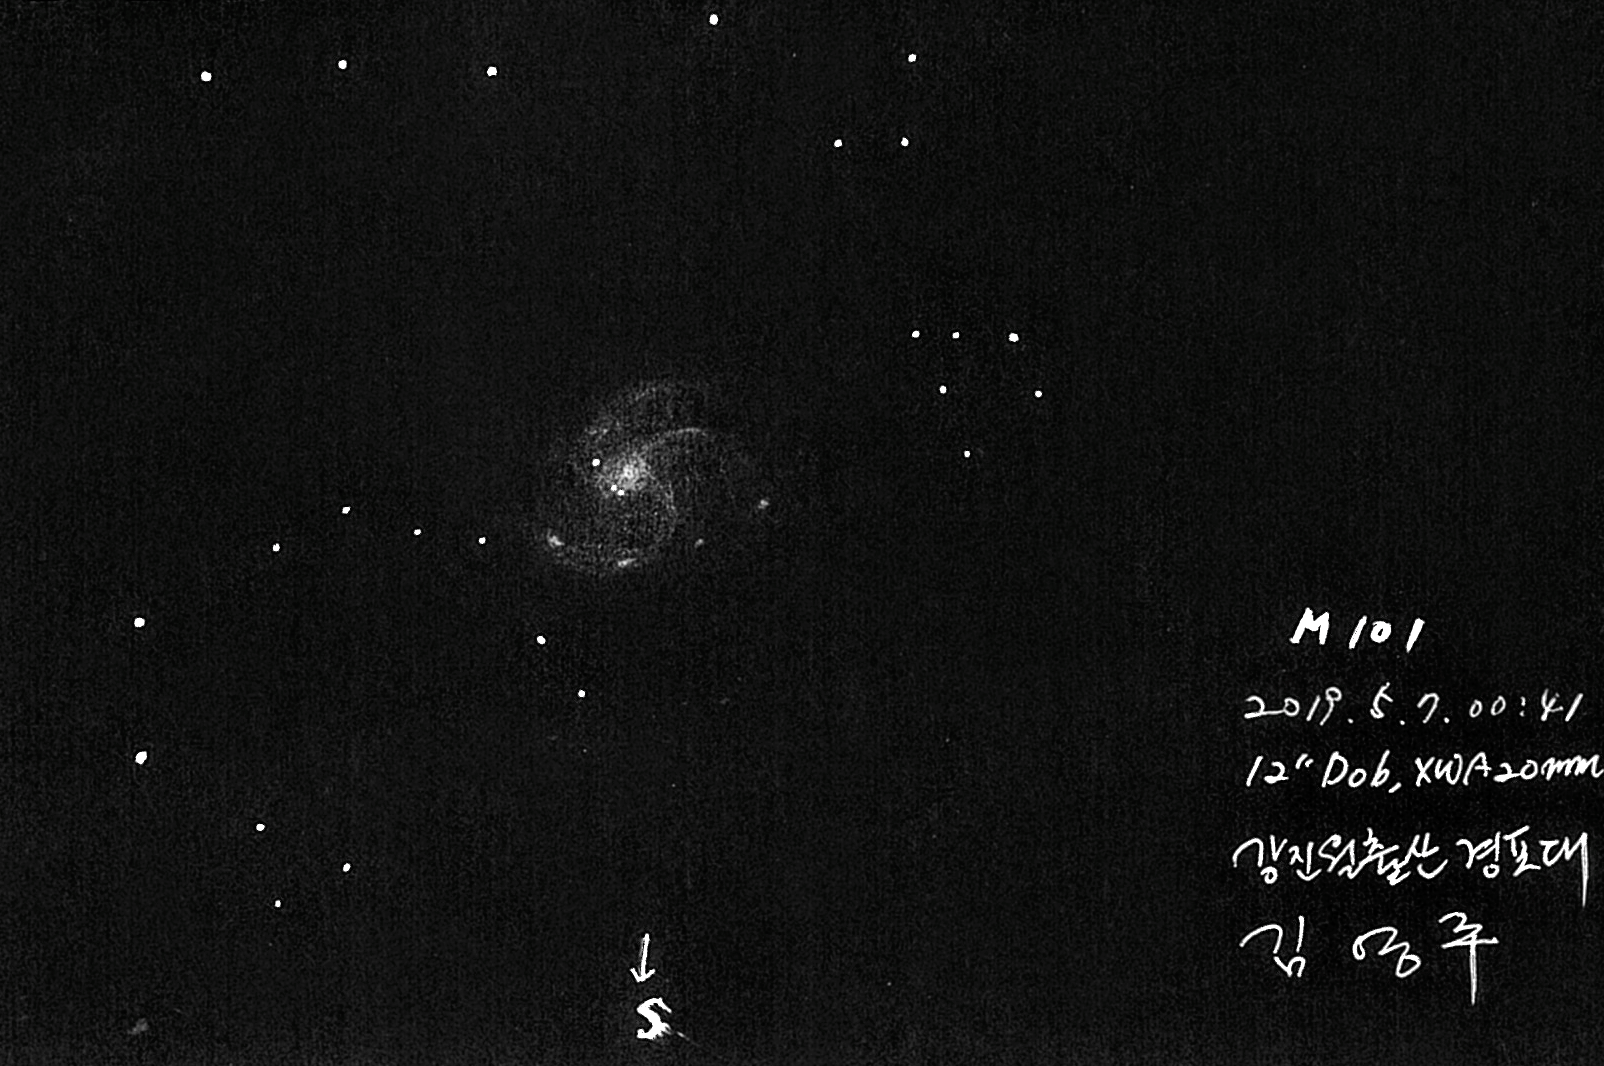 M 101
2019. 5. 7. 00:41
12" Dob, XWA20mm
강진월출산 경포대
김영주
↓
S